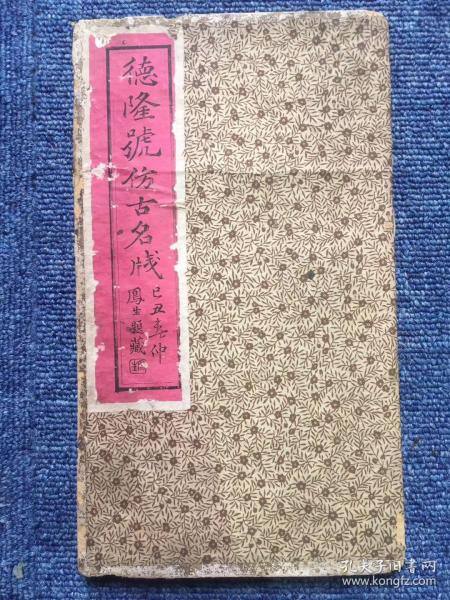 德隆號仿古名牋
己丑春仲
鳳生題藏
孔夫子旧书网
www.kongfz.com